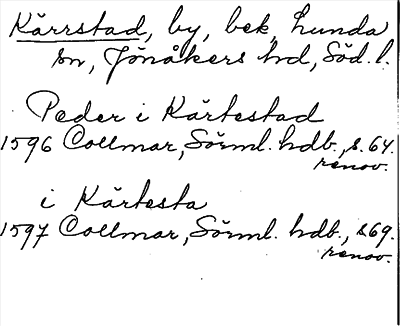 Kärrstad, by, bek, Lunda
sn, Jönåkers hd, Söd. l.
Peder i Kärtestad
1596 Collmar, Sörml. hdb., s. 64.
renov.
i Kärtesta
1597 Collmar, Sörml. hdb., s69.
renov.